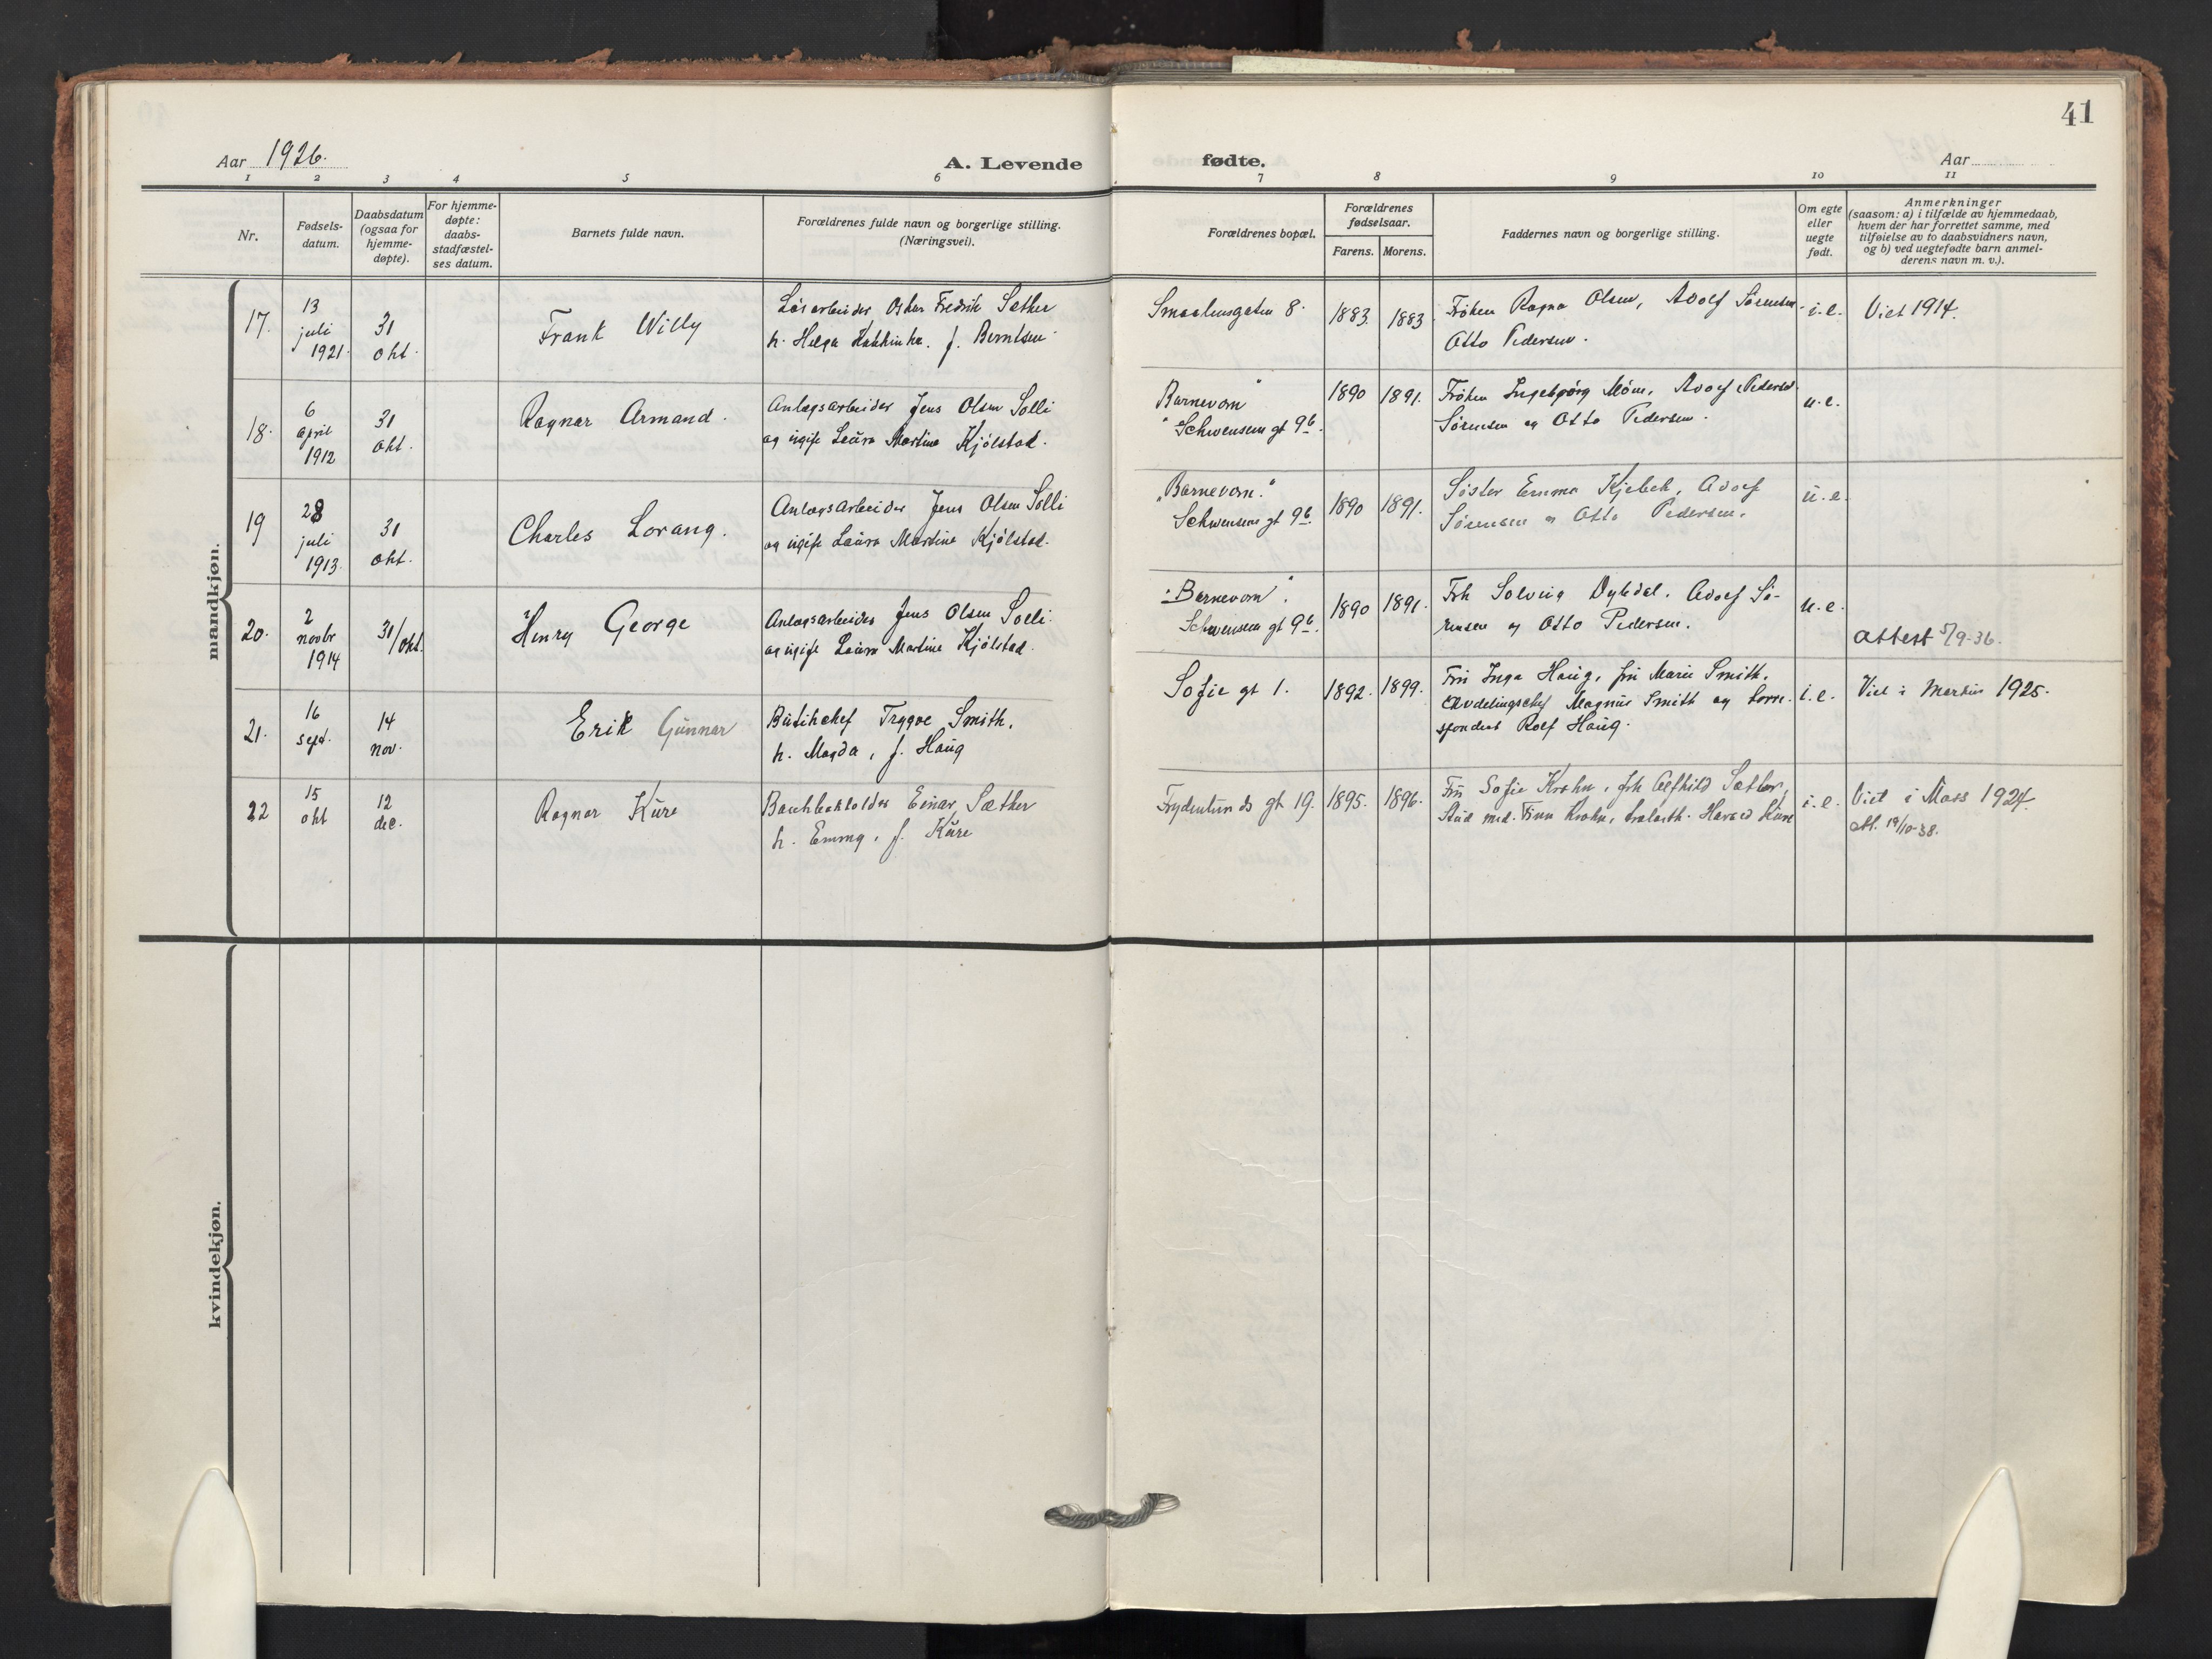 41
Aar 1926.
A. Levende fødte.
Aar
1 2 3 4 5 6 7 8 9 10 11
Nr.
Fødsels-
datum.
Daabsdatum
(ogsaa for
hjemme-
døpte).
For hjemme-
døpte:
daabs-
stadfæstel-
ses datum.
Barnets fulde navn.
Forældrenes fulde navn og borgerlige stilling.
(Næringsvei).
Forældrenes bopæl.
Forældrenes
fødselsaar.
Farens. Morens.
Faddernes navn og borgerlige stilling.
Om egte
eller
uegte
født.
Anmerkninger
(saasom: a) i tilfælde av hjemmedaab,
hvem der har forrettet samme, med
tilføielse av to daabsvidners navn,
og b) ved uegtefødte barn anmel-
derens navn m. v.).
mandkjøn.
17.
13
juli
1921.
31
okt.
Frank Willy
Løsarbeider Oskar Fredrik Sæther
h. Helga f. Berntsen
Smaalensgaten 8.
1883. 1883.
Frøken Ragna Olsen, Adolf Sørensen
Otto Pedersen.
i.e.
Viet 1914.
18.
6
april
1912
31
okt.
Ragnar Armand.
Anlægsarbeider Jens Olsen Solli
og ugift Laura Martine Kjølstad.
"Barnevern"
Schwensens gt 9b.
1890 1891.
Frøken Ingebjørg Mone, Adolf Pedersen
Sørensen og Otto Pedersen.
u.e.
19
28
juli
1913.
31
okt.
Charles Lorang.
Anlægsarbeider Jens Olsen Solli
og ugift Laura Martine Kjølstad.
"Barnevern."
Schwensens gt 9b.
1890 1891.
Søster Emma Adolf
Sørensen og Otto Pedersen.
u.e.
20.
2
novbr
1914
31/okt.
Henry George
Anlægsarbeider Jens Olsen Solli.
og ugift Laura Martine Kjølstad.
"Barnevern".
Schwensens gt 9b.
1890 1891.
Frk Solveig Dybdal. Adolf Sø-
rensen og Otto Pedersen.
u.e.
Attest 5/9-36.
21.
16
sept.
14
nov.
Erik Gunnar
Butikchef Trygve Smith.
h. Magda, f. Haug
Sofie gt 1.
1892. 1899.
Fru Inga Haug, fru Marie Smith.
Avdelingschef Magnus Smith og korre-
spondent Rolf Haug.
i.e.
Viet i Markus 1925.
22
15
okt
12
dec.
Ragnar Kure
Bankbokholder Einar Sæther
h. Emmy, f. Kure
Frydenlunds gt 19.
1895. 1896.
Fru Sofie Krohn, frk Alfhild Sæther,
Stud med. Finn Krohn, Harald Kure
i.e.
Viet i Moss 1924.
att. 19/10-38.
kvindekjøn.